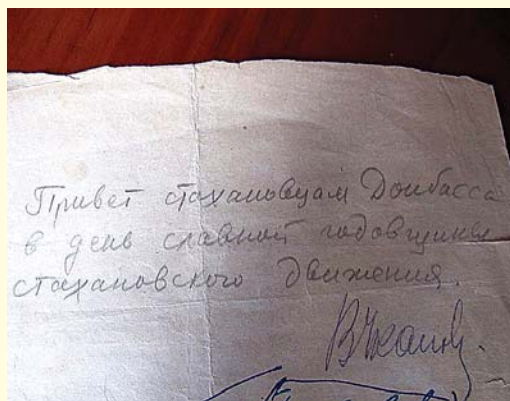 Привет стахановцам Донбасса
в день славной годовщины
стахановского движения.
ВЧкалов.